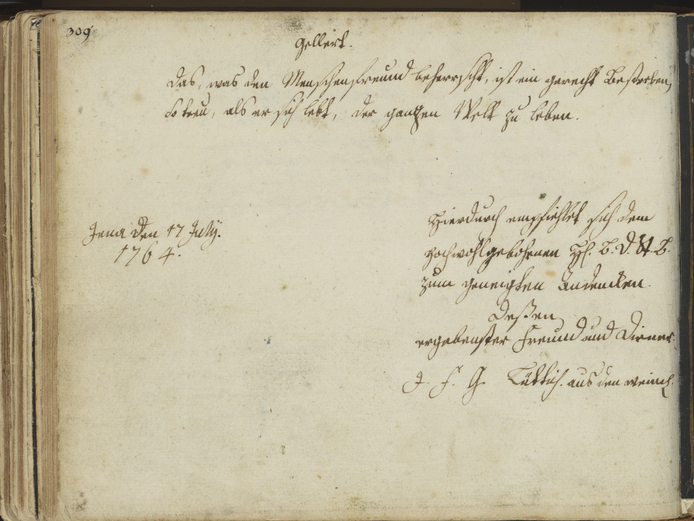 309
Gellert.
Das, was den Menschenfreund beherrscht, ist ein gerecht Bestreben,
So treu, als er sich lebt, der gantzen Welt zu leben.
Jena den 17 July.
1764.
Hierdurch empfiehlet sich dem
Hochwohlgebohrnen H. B. D.
zum geneigten Andencken
Deßen
ergebenster Freund und Diener
J. F. G. aus den